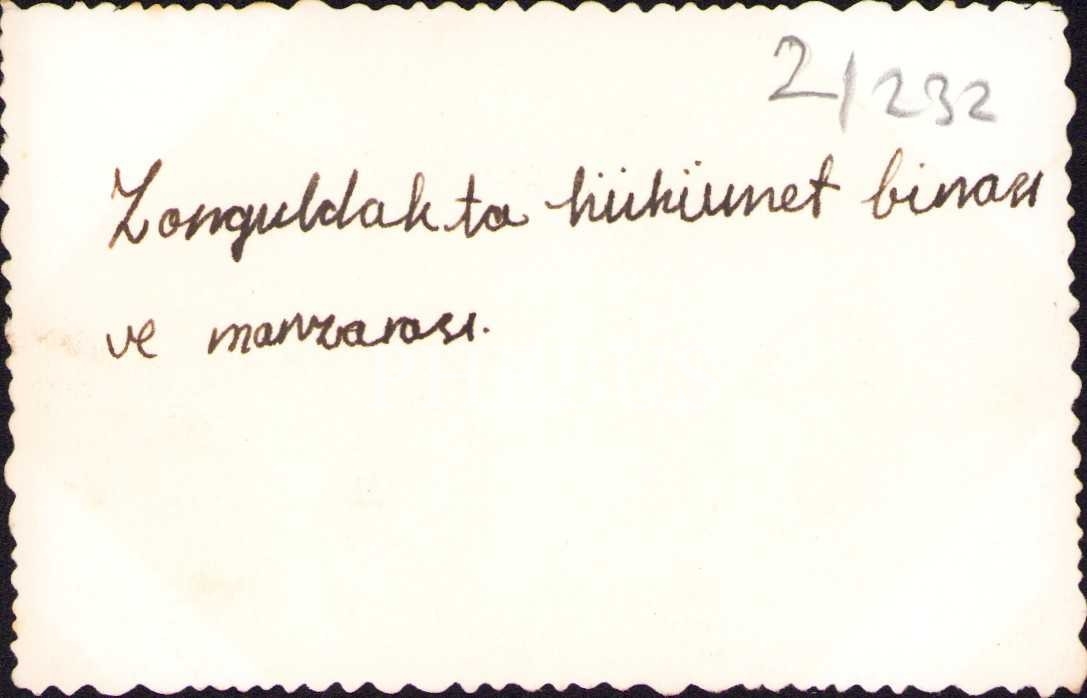 2/232
Zonguldakta hükümet binası
ve manzarası.